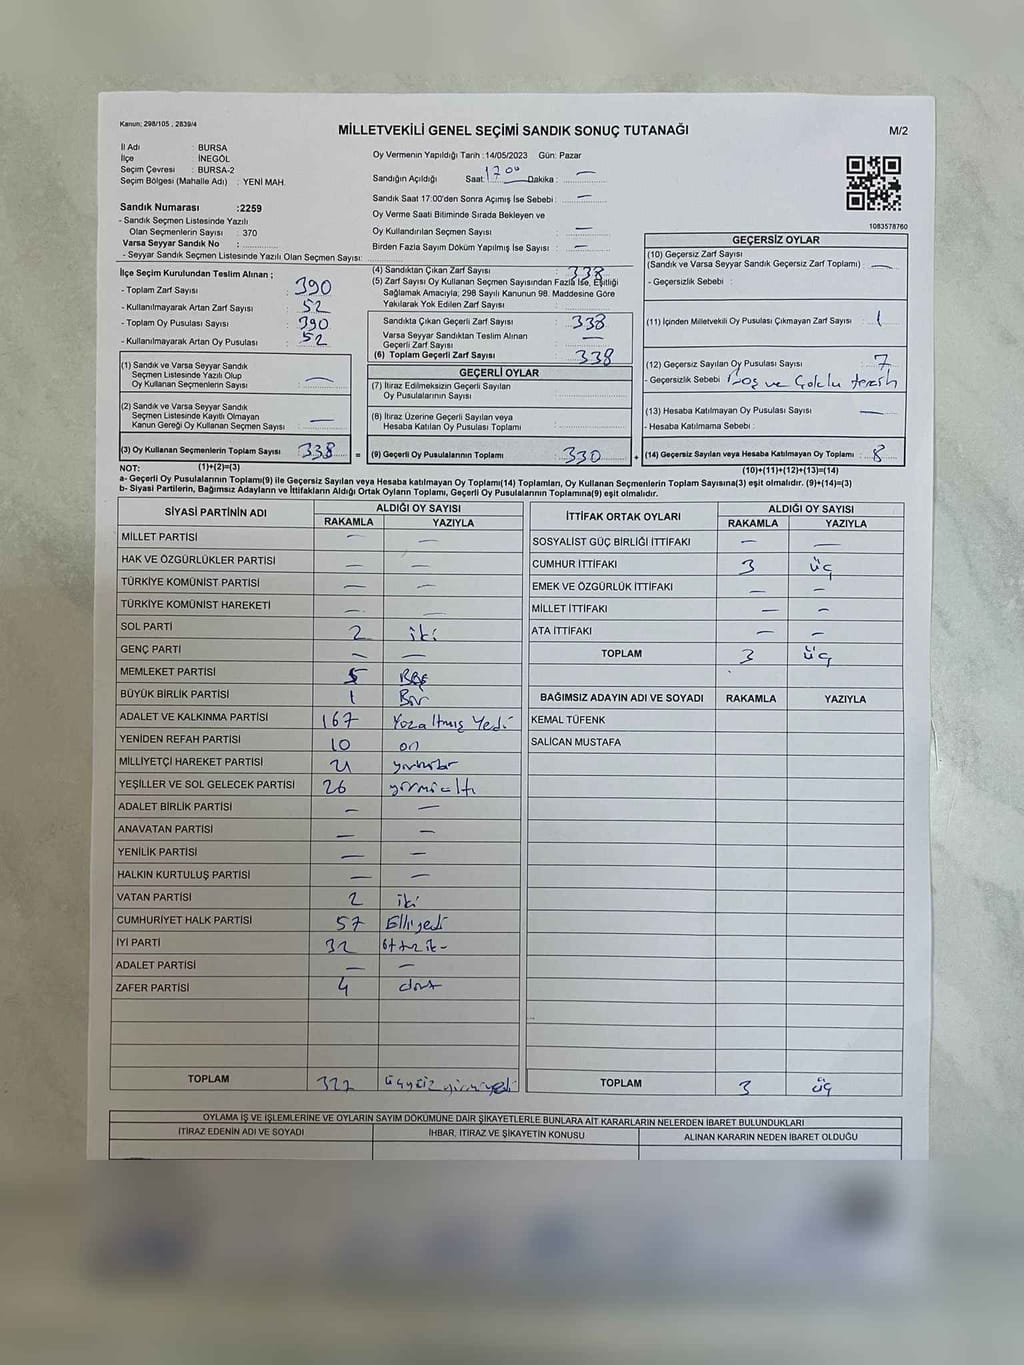 Kanun: 298/105 , 2839/4
MİLLETVEKİLİ GENEL SEÇİMİ SANDIK SONUÇ TUTANAĞI
M/2
İl Adı : BURSA
İlçe : İNEGÖL
Seçim Çevresi : BURSA-2
Seçim Bölgesi (Mahalle Adı) : YENİ MAH.
Sandık Numarası :2259
- Sandık Seçmen Listesinde Yazılı
Olan Seçmenlerin Sayısı : 370
Varsa Seyyar Sandık No :
- Seyyar Sandık Seçmen Listesinde Yazılı Olan Seçmen Sayısı:
Oy Vermenin Yapıldığı Tarih :14/05/2023 Gün: Pazar
Sandığın Açıldığı Saat: 17 00 Dakika : —
Sandık Saat 17:00'den Sonra Açımış İse Sebebi : —
Oy Verme Saati Bitiminde Sırada Bekleyen ve
Oy Kullandırılan Seçmen Sayısı : —
Birden Fazla Sayım Döküm Yapılmış İse Sayısı : —
1083578760
İlçe Seçim Kurulundan Teslim Alınan ;
- Toplam Zarf Sayısı : 390
- Kullanılmayarak Artan Zarf Sayısı : 52
- Toplam Oy Pusulası Sayısı : 390
- Kullanılmayarak Artan Oy Pusulası : 52
(1) Sandık ve Varsa Seyyar Sandık
Seçmen Listesinde Yazılı Olup
Oy Kullanan Seçmenlerin Sayısı : —
(2) Sandık ve Varsa Seyyar Sandık
Seçmen Listesinde Kayıtlı Olmayan
Kanun Gereği Oy Kullanan Seçmen Sayısı : —
(3) Oy Kullanan Seçmenlerin Toplam Sayısı : 338
(4) Sandıktan Çıkan Zarf Sayısı : 338
(5) Zarf Sayısı Oy Kullanan Seçmen Sayısından Fazla İse, Eşitliği
Sağlamak Amacıyla; 298 Sayılı Kanunun 98. Maddesine Göre
Yakılarak Yok Edilen Zarf Sayısı :
Sandıkta Çıkan Geçerli Zarf Sayısı : 338
Varsa Seyyar Sandıktan Teslim Alınan
Geçerli Zarf Sayısı : —
(6) Toplam Geçerli Zarf Sayısı : 338
GEÇERLİ OYLAR
(7) İtiraz Edilmeksizin Geçerli Sayılan
Oy Pusulalarının Sayısı :
(8) İtiraz Üzerine Geçerli Sayılan veya
Hesaba Katılan Oy Pusulası Toplamı :
= (9) Geçerli Oy Pusulalarının Toplamı : 330 +
GEÇERSİZ OYLAR
(10) Geçersiz Zarf Sayısı
(Sandık ve Varsa Seyyar Sandık Geçersiz Zarf Toplamı) : —
- Geçersizlik Sebebi :
(11) İçinden Milletvekili Oy Pusulası Çıkmayan Zarf Sayısı : 1
(12) Geçersiz Sayılan Oy Pusulası Sayısı : 7
- Geçersizlik Sebebi : Boş ve Çoklu tercih
(13) Hesaba Katılmayan Oy Pusulası Sayısı : —
- Hesaba Katılmama Sebebi :
(14) Geçersiz Sayılan veya Hesaba Katılmayan Oy Toplamı : 8
NOT: (1)+(2)=(3) (10)+(11)+(12)+(13)=(14)
a- Geçerli Oy Pusulalarının Toplamı(9) ile Geçersiz Sayılan veya Hesaba Katılmayan Oy Toplamı(14) Toplamları, Oy Kullanan Seçmenlerin Toplam Sayısına(3) eşit olmalıdır. (9)+(14)=(3)
b- Siyasi Partilerin, Bağımsız Adayların ve İttifakların Aldığı Ortak Oyların Toplamı, Geçerli Oy Pusulalarının Toplamına(9) eşit olmalıdır.
SİYASİ PARTİNİN ADI ALDIĞI OY SAYISI
RAKAMLA YAZIYLA
MİLLET PARTİSİ — —
HAK VE ÖZGÜRLÜKLER PARTİSİ — —
TÜRKİYE KOMÜNİST PARTİSİ — —
TÜRKİYE KOMÜNİST HAREKETİ — —
SOL PARTİ 2 iki
GENÇ PARTİ — —
MEMLEKET PARTİSİ 5 Beş
BÜYÜK BİRLİK PARTİSİ 1 Bir
ADALET VE KALKINMA PARTİSİ 167 Yüzaltmış Yedi
YENİDEN REFAH PARTİSİ 10 on
MİLLİYETÇİ HAREKET PARTİSİ 21 yirmibir
YEŞİLLER VE SOL GELECEK PARTİSİ 26 yirmialtı
ADALET BİRLİK PARTİSİ — —
ANAVATAN PARTİSİ — —
YENİLİK PARTİSİ — —
HALKIN KURTULUŞ PARTİSİ — —
VATAN PARTİSİ 2 iki
CUMHURİYET HALK PARTİSİ 57 Elliyedi
İYİ PARTİ 32 otuz iki
ADALET PARTİSİ — —
ZAFER PARTİSİ 4 dört
TOPLAM 327 üçyüz yirmiyedi
İTTİFAK ORTAK OYLARI ALDIĞI OY SAYISI
RAKAMLA YAZIYLA
SOSYALİST GÜÇ BİRLİĞİ İTTİFAKI — —
CUMHUR İTTİFAKI 3 üç
EMEK VE ÖZGÜRLÜK İTTİFAKI — —
MİLLET İTTİFAKI — —
ATA İTTİFAKI — —
TOPLAM 3 üç
BAĞIMSIZ ADAYIN ADI VE SOYADI RAKAMLA YAZIYLA
KEMAL TÜFENK
SALİCAN MUSTAFA
TOPLAM 3 üç
OYLAMA İŞ VE İŞLEMLERİNE VE OYLARIN SAYIM DÖKÜMÜNE DAİR ŞİKAYETLERLE BUNLARA AİT KARARLARIN NELERDEN İBARET BULUNDUKLARI
İTİRAZ EDENİN ADI VE SOYADI İHBAR, İTİRAZ VE ŞİKAYETİN KONUSU ALINAN KARARIN NEDEN İBARET OLDUĞU